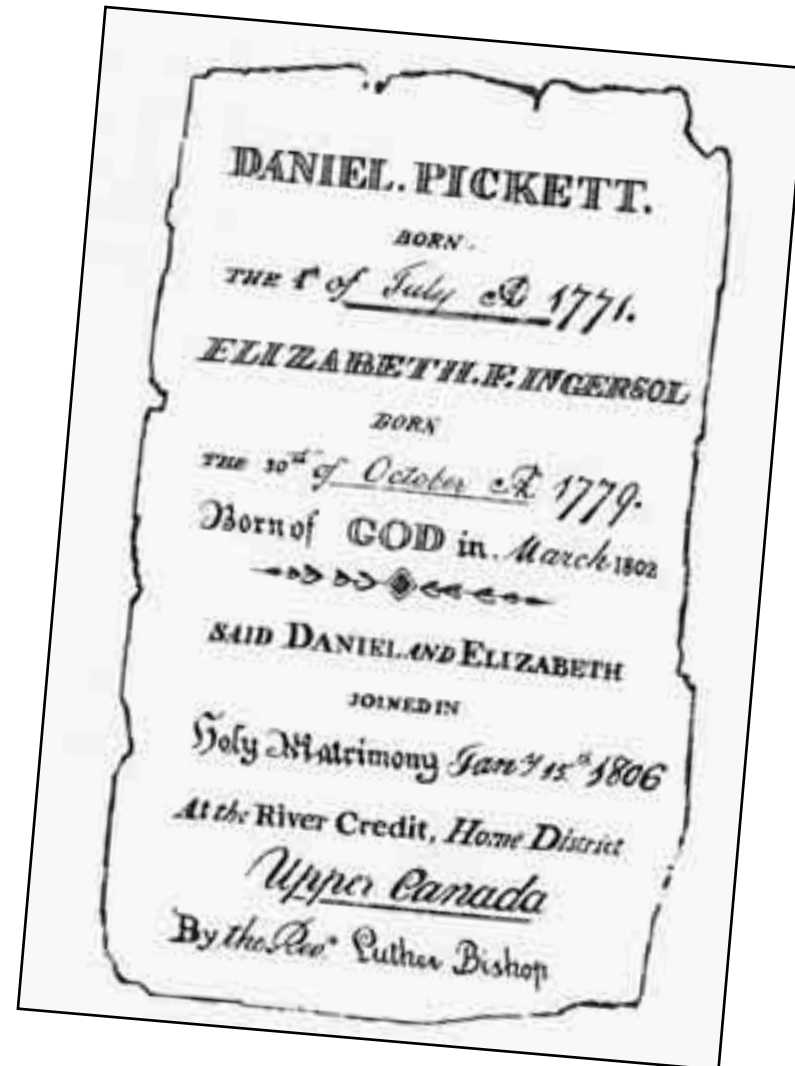 DANIEL. PICKETT.
BORN.
THE 4th of July AD 1771.
ELIZABETH. F. INGERSOL
BORN
THE 30th of October AD 1779.
Born of GOD in. March 1802
SAID DANIEL AND ELIZABETH
JOINED IN
Holy Matrimony Jany 15th 1806
At the River Credit, Home District
Upper Canada
By the Revd Luther Bishop